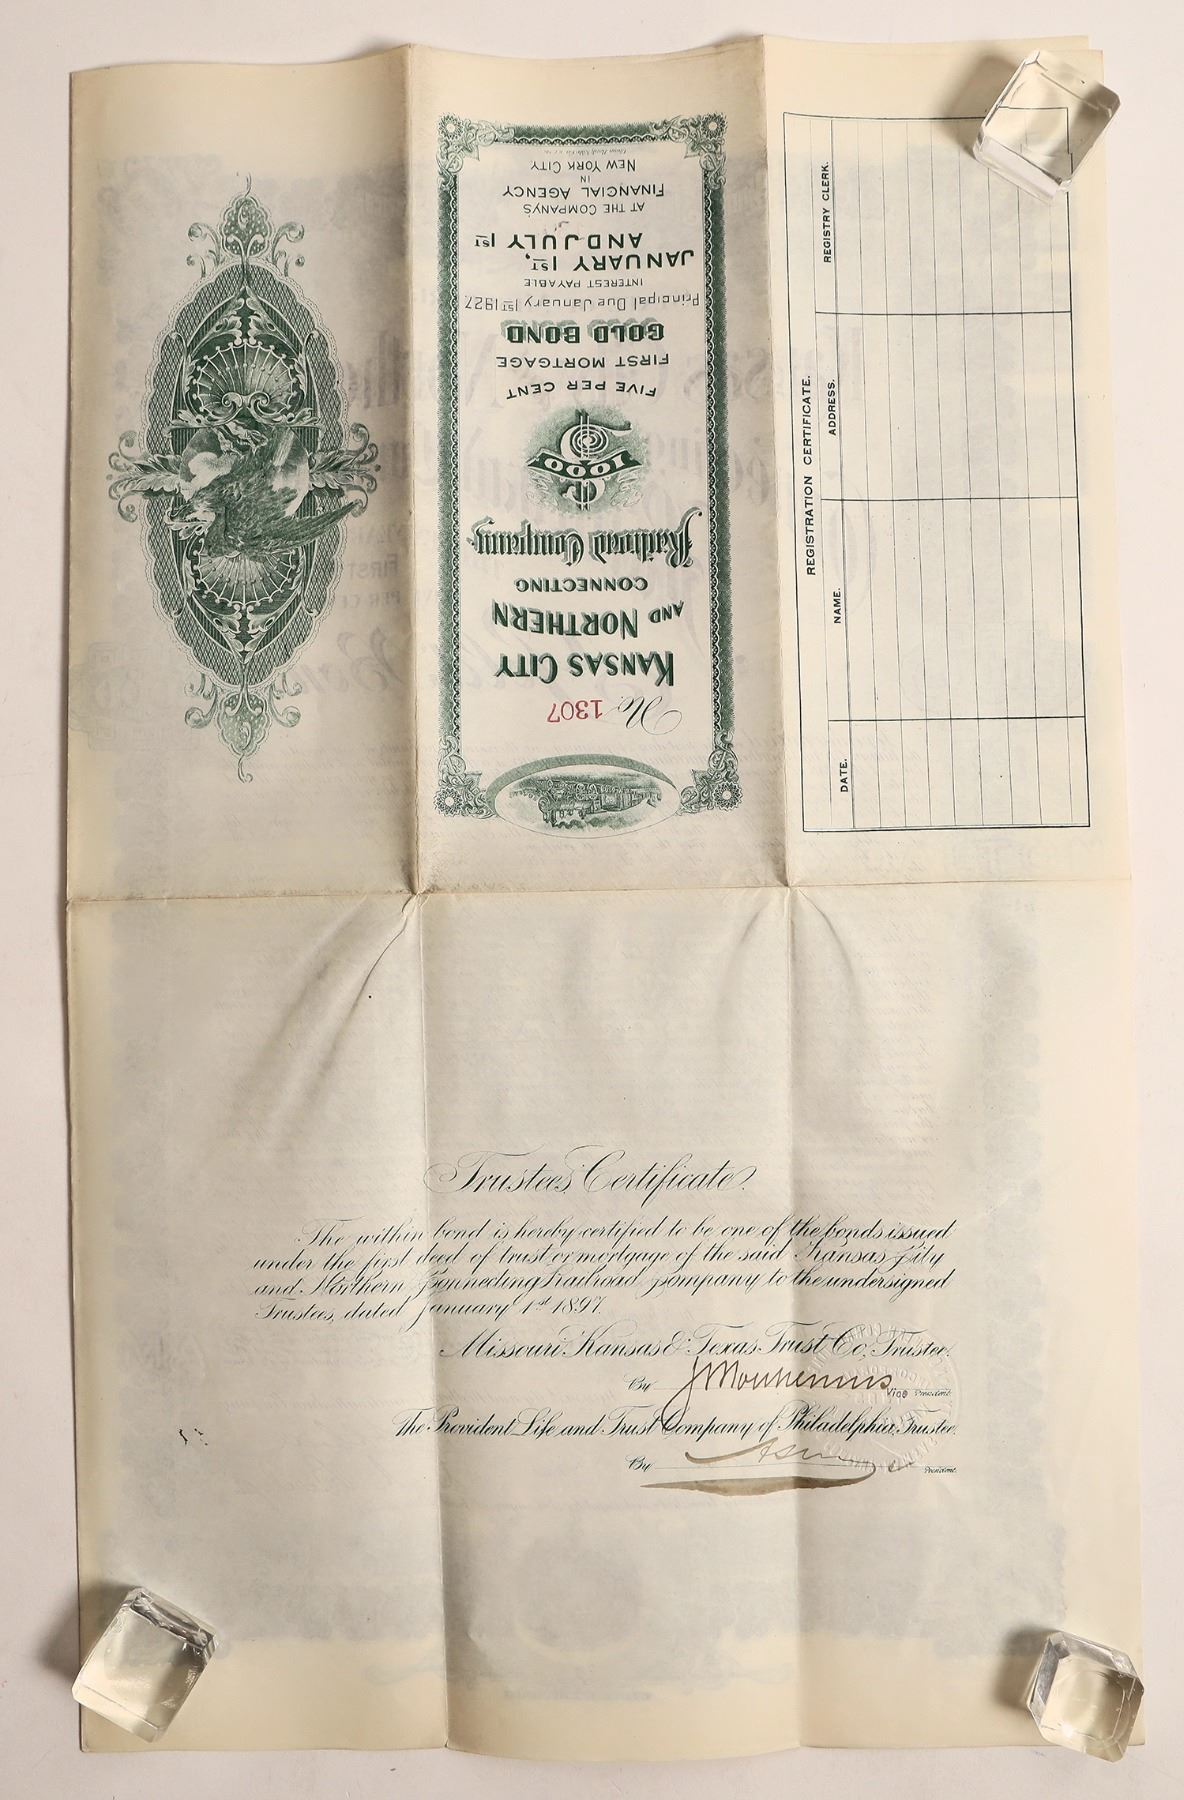 No 1307
KANSAS CITY
AND NORTHERN
CONNECTING
Railroad Company.
$1000
FIVE PER CENT
FIRST MORTGAGE
GOLD BOND
Principal Due January 1ST 1927
INTEREST PAYABLE
JANUARY 1ST,
AND JULY 1ST
AT THE COMPANY'S
FINANCIAL AGENCY
IN
NEW YORK CITY
REGISTRATION CERTIFICATE.
DATE. NAME. ADDRESS. REGISTRY CLERK.
Trustees' Certificate.
The within bond is hereby certified to be one of the bonds issued
under the first deed of trust or mortgage of the said Kansas City
and Northern Connecting Railroad Company to the undersigned
Trustees, dated January 1st 1897.
Missouri, Kansas & Texas Trust Co, Trustee.
By Vice President.
The Provident Life and Trust Company of Philadelphia, Trustee.
By President.